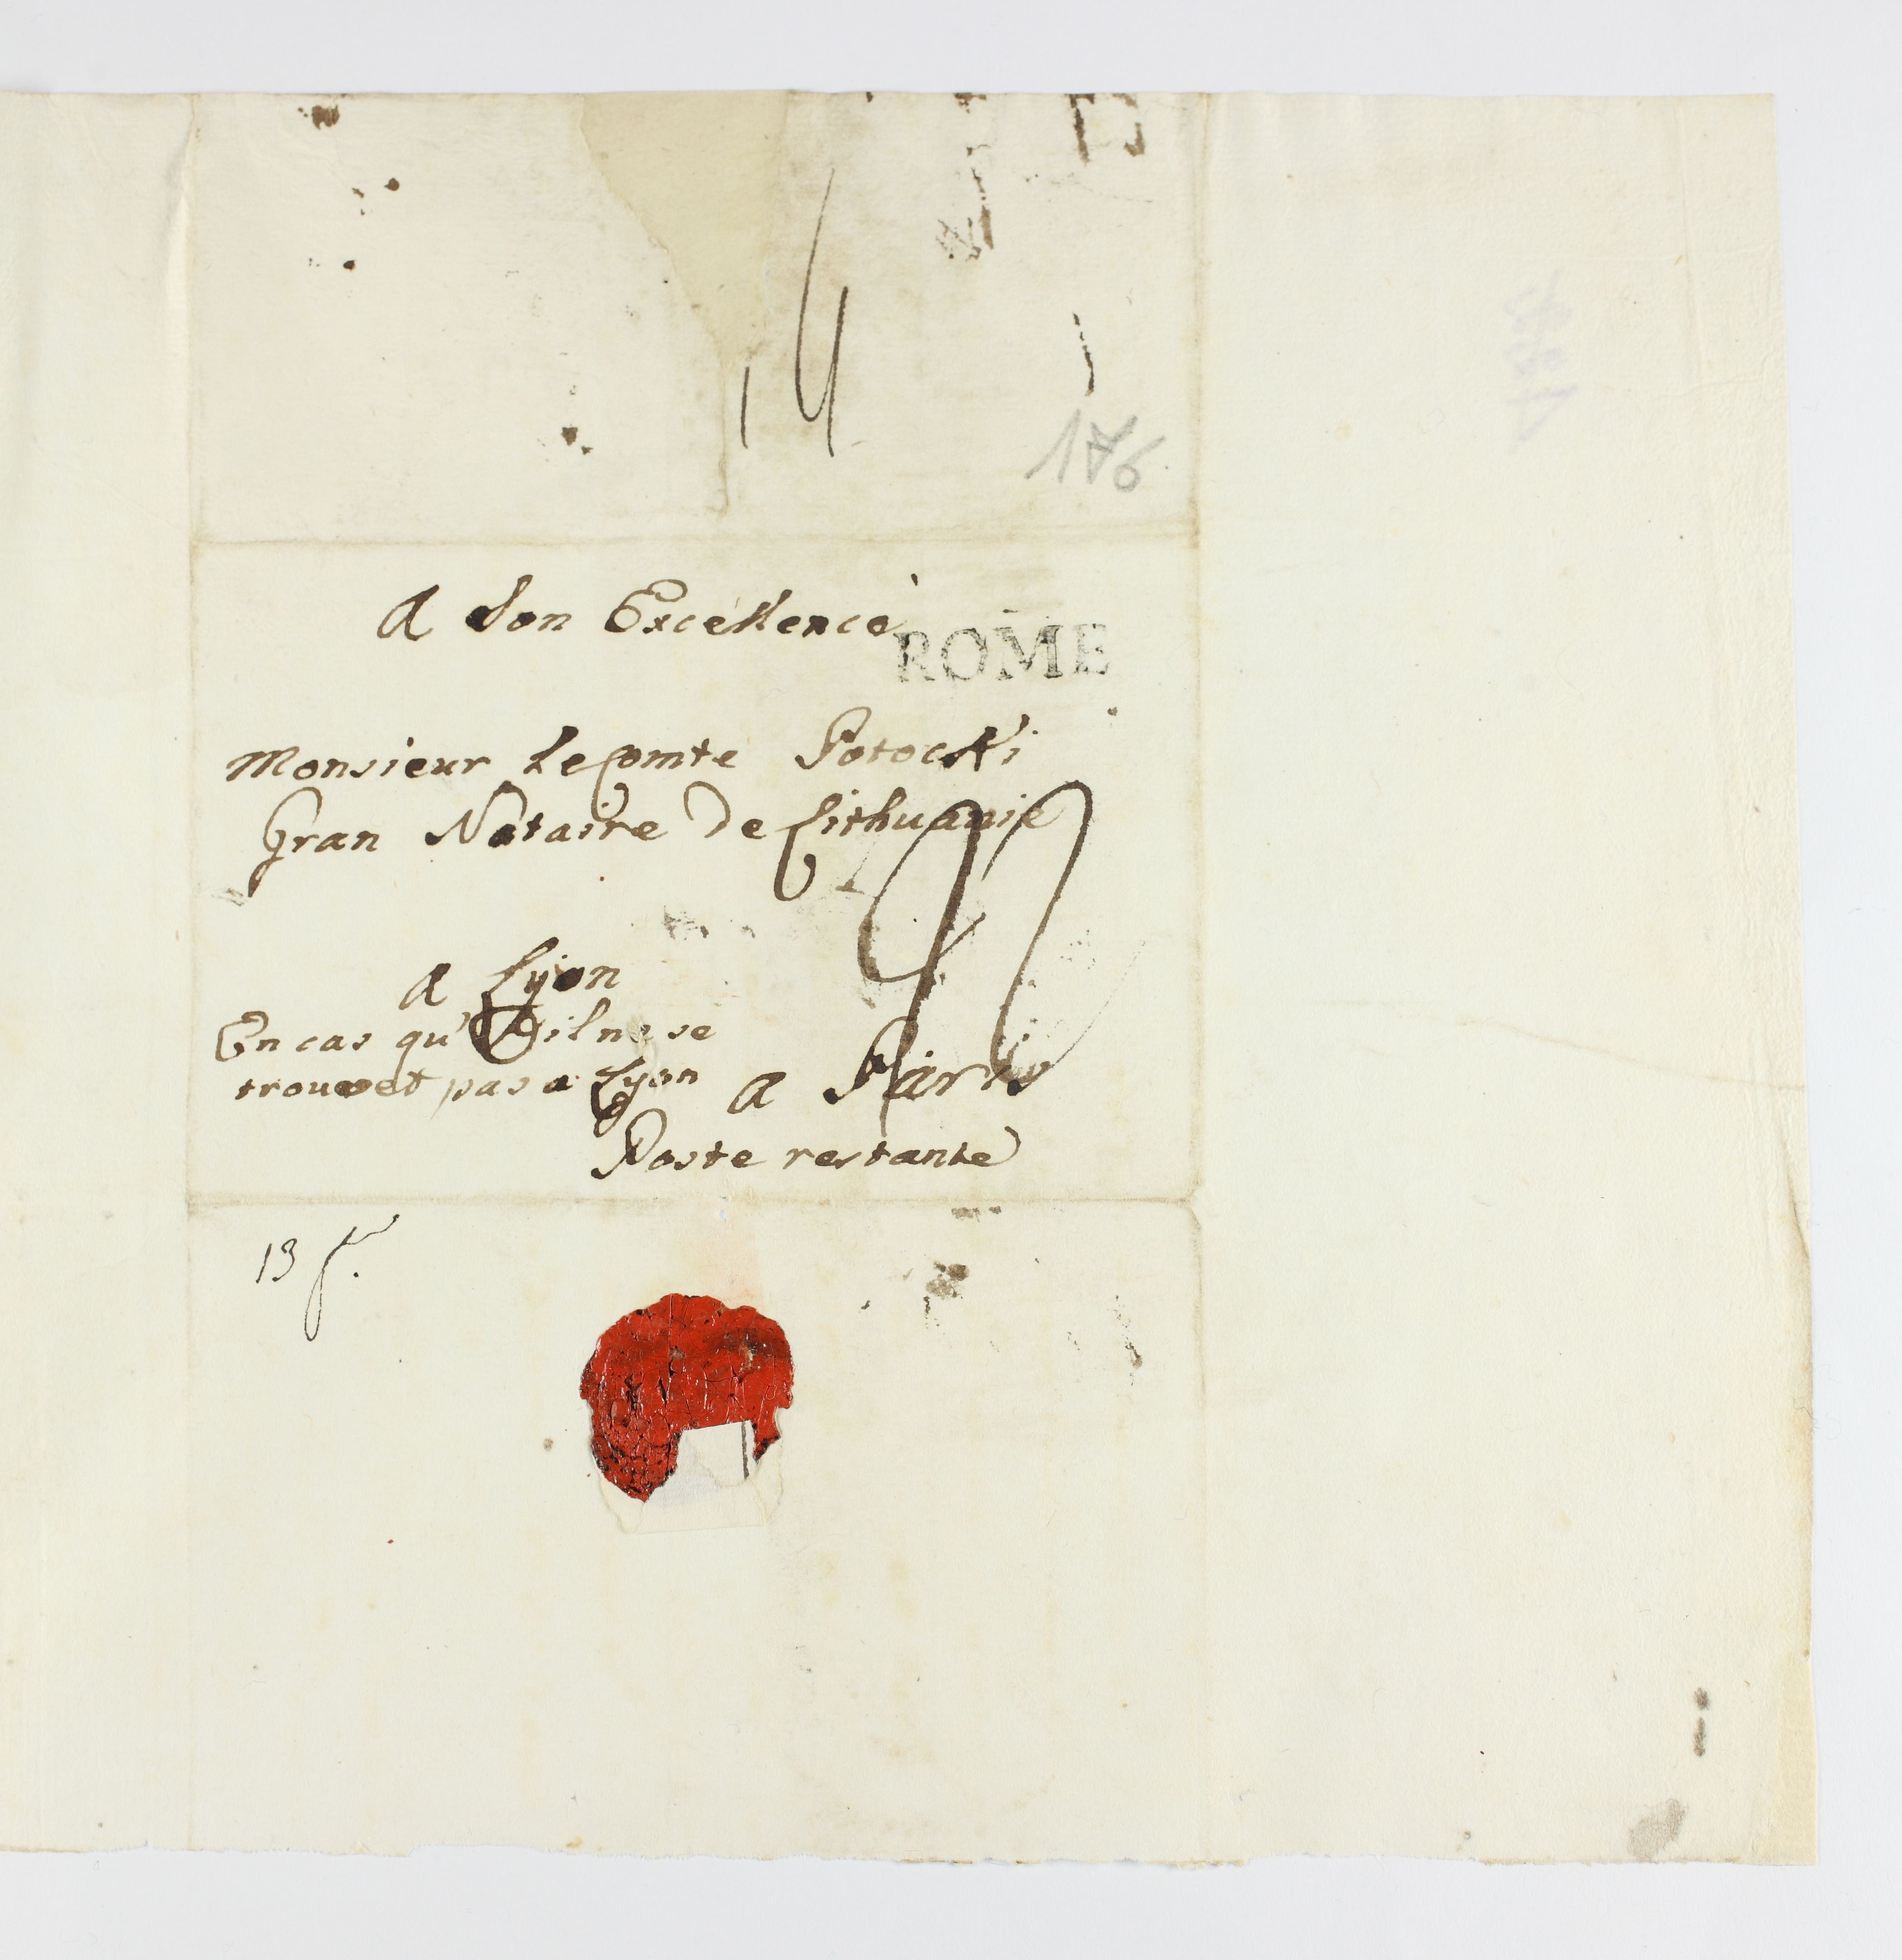 14
A Son Excellence
ROME
Monsieur Le Comte Potocki
Gran Notaire De Lithuanie
a Lyon
En cas qu'il ne se
trouvet pas a Lyon a Paris
Poste restante
13